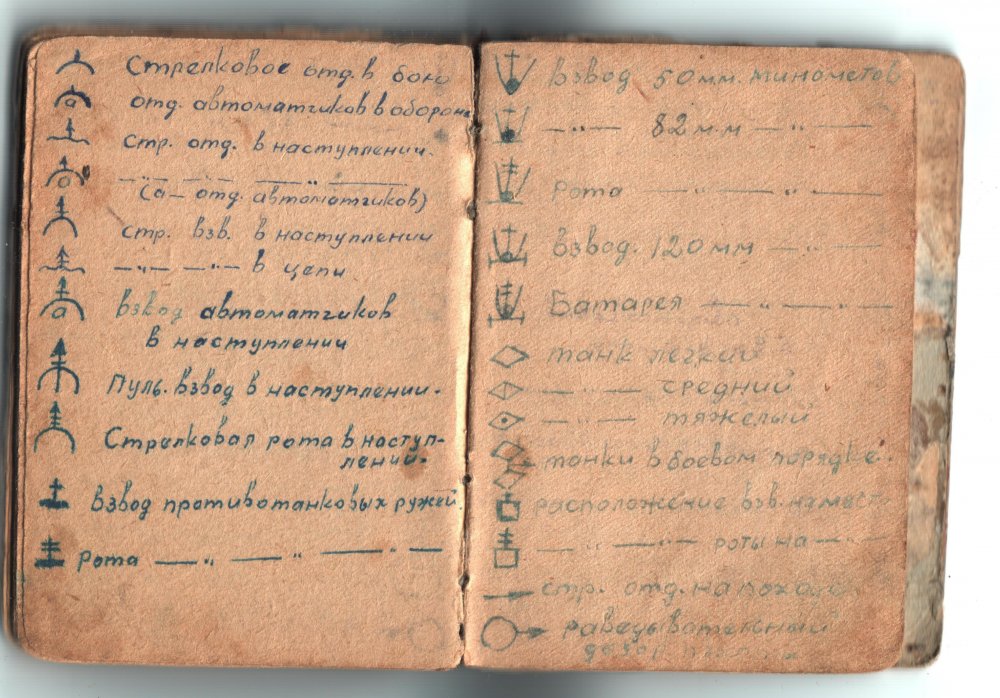 Стрелковое отд. в бою
отд. автоматчиков в оборон.
стр. отд. в наступлении.
—"— —"— — " —
(а – отд. автоматчиков)
стр. взв. в наступлении
—"— —"— в цепи
взвод автоматчиков
в наступлении
Пуль. взвод в наступлении.
Стрелковая рота в наступ-
лении.
Взвод противотанковых ружей.
Рота — " — " — —
Взвод 50 мм. минометов
— " — 82 м.м — " —
Рота — " —
Взвод. 120 мм — " —
Батарея — " — " —
танк легкий
— " — " — средний
— " — " — тяжелый
танки в боевом порядке.
расположение взв. на мест.
— " — " — роты на — " —
стр. отд. на походе
разведывательный
дозор